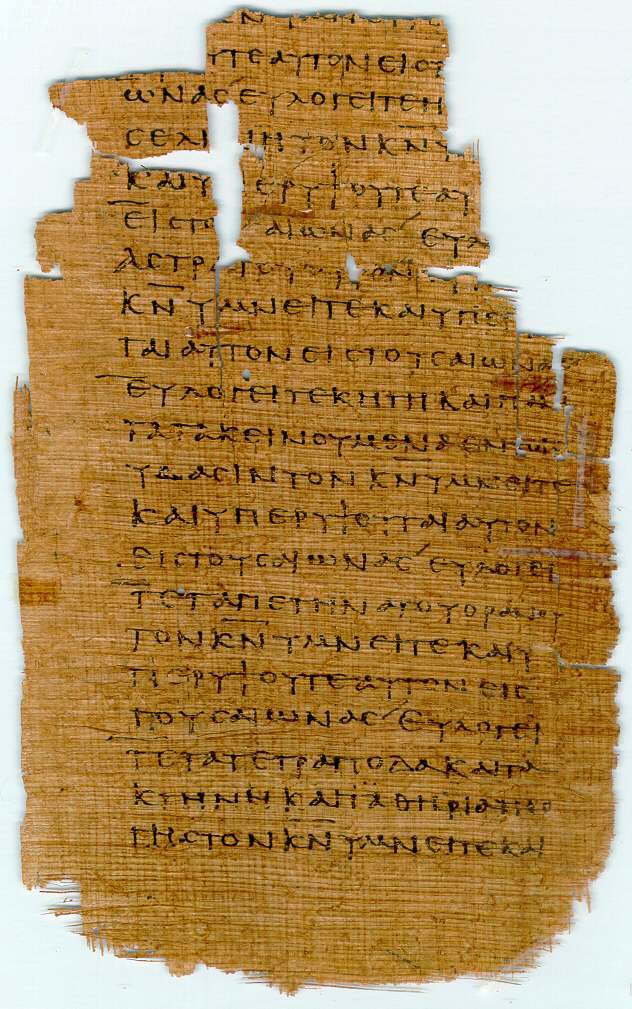 ΥΤΕΑΥΤΟΝΕΙϹΤ
ΩΝΑϹ ΕΥΛΟΓΕΙΤΕΗ
ϹΕΛ ΝΗΤΟΝΚ̅Ν̅Υ
ΚΑΙΥ ΕΡΥΨΟΥΤΕΑΥ
ΕΙϹΤΟ ΑΙΩΝΑϹ ΕΥΛ
ΑϹΤΡ
Κ̅Ν̅ΥΜΝΕΙΤΕΚΑΙΥΠΕ
ΤΑΙΑΥΤΟΝΕΙϹΤΟΥϹΑΙΩΝΑϹ
ΕΥΛΟΓΕΙΤΕΚΗΤΗΚΑΙΠΑΝ
ΤΑΤΑΚΕΙΝΟΥΜΕΝΑΕΝ
ΥΔΑϹΙΝΤΟΝΚ̅Ν̅ΥΜΝΕΙΤΕ
ΚΑΙΥΠΕΡΥΨΟΥΤΑΙΑΥΤΟΝ
ΕΙϹΤΟΥϹΑΙΩΝΑϹ ΕΥΛΟΓΕΙ
ΤΕΤΑΠΕΤΗΝΑΤΟΥΟΡΑΝΟΥ
ΤΟΝΚ̅Ν̅ΥΜΝΕΙΤΕΚΑΙΥ
ΠΕΡΥΨΟΥΤΕΑΥΤΟΝΕΙϹ
ΤΟΥϹΑΙΩΝΑϹ ΕΥΛΟΓΕΙ
ΤΕΤΑΤΕΤΡΑΠΟΔΑΚΑΙΤΑ
ΚΤΗΝΗΚΑΙΤΑΘΗΡΙΑΤΗϹ
ΓΗϹΤΟΝΚ̅Ν̅ΥΜΝΕΙΤΕΚΑΙ